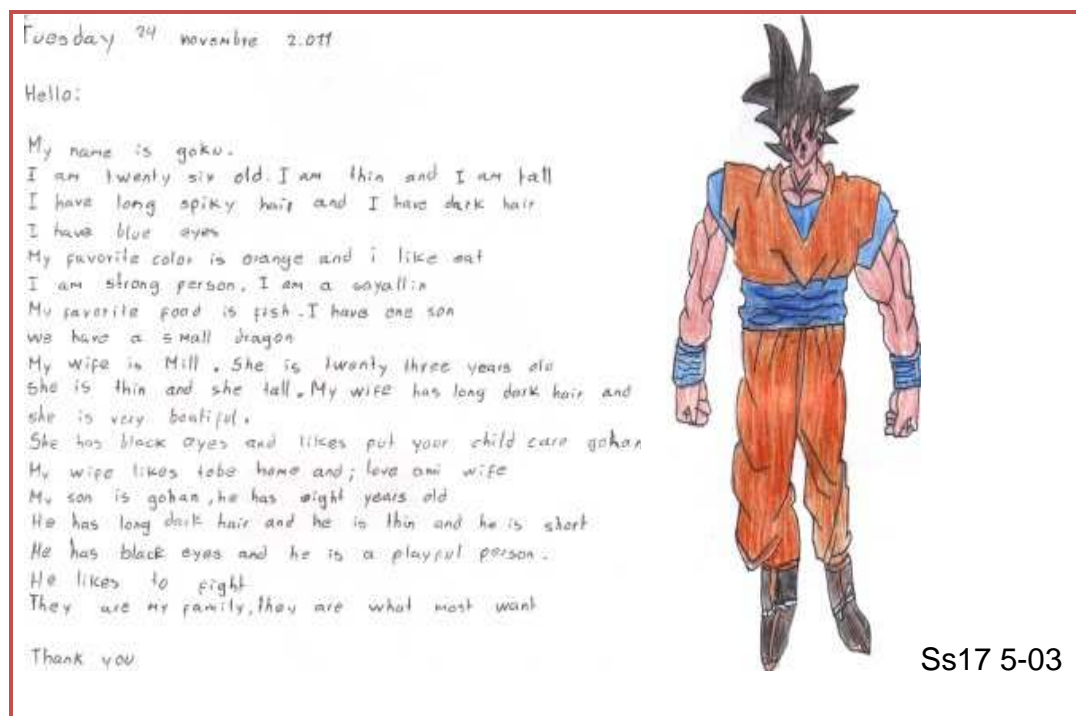 Tuesday 24 novembre 2.011
Hello:
My name is goku.
I am twenty six old. I am thin and I am tall
I have long spiky hair and I have dark hair
I have blue eyes
My favorite color is orange and i like eat
I am strong person. I am a sayallin
My favorite food is fish. I have one son
we have a small dragon
My wife is Mill. She is twenty three years old
she is thin and she tall. My wife has long dark hair and
she is very beatiful.
She has black eyes and likes put your child care gohan
My wife likes tobe home and; love ami wife
My son is gohan, he has eight years old
He has long dark hair and he is thin and he is short
He has black eyes and he is a playful person.
He likes to fight
They are my family, they are what most want
Thank you
Ss17 5-03